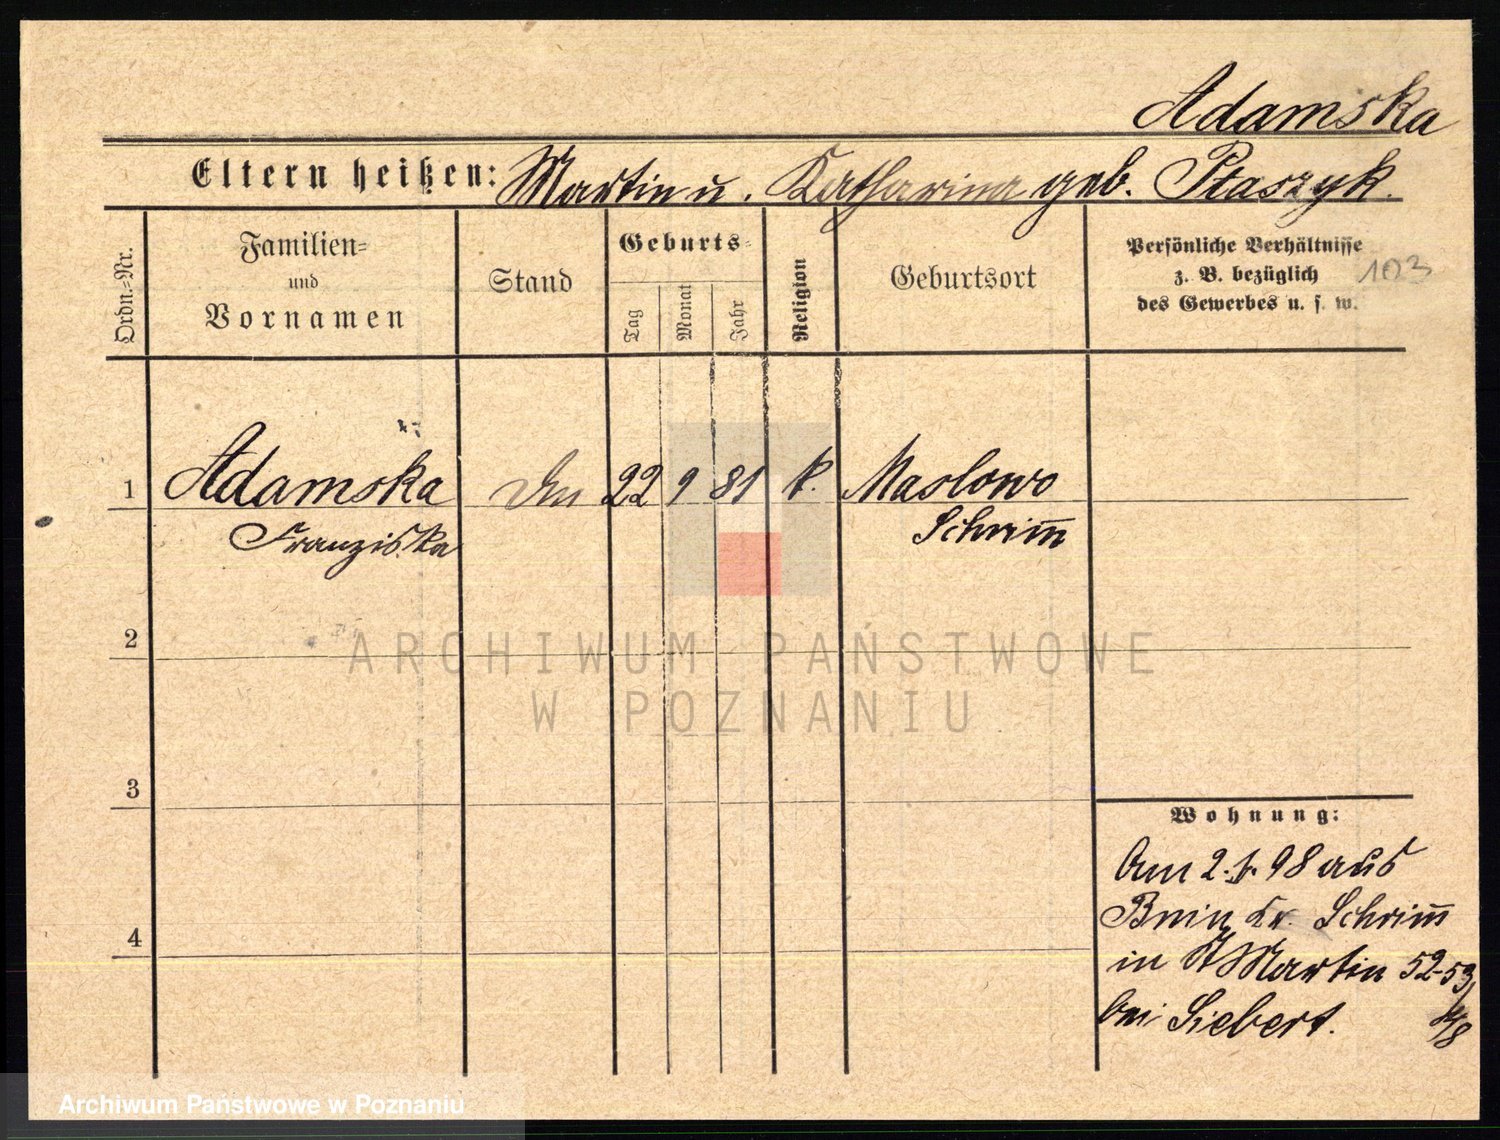 Adamska
Eltern heißen: Martin u. Katharina geb. Ptaszyk.
Ordn.-Nr.
Familien-
und
Vornamen
Stand
Geburts-
Tag
Monat
Jahr
Religion
Geburtsort
Persönliche Verhältnisse
z. B. bezüglich
des Gewerbes u. s. w.
103
1 Adamska 22 9 81 k. Maslowo
Franziska Schrim̅
2
ARCHIWUM PAŃSTWOWE
W POZNANIU
3
4
Wohnung:
Am 2. 98 aus
Bnin Kr. Schrim̅
in St Martin 52-53/
bei Siebert.
Archiwum Państwowe w Poznaniu